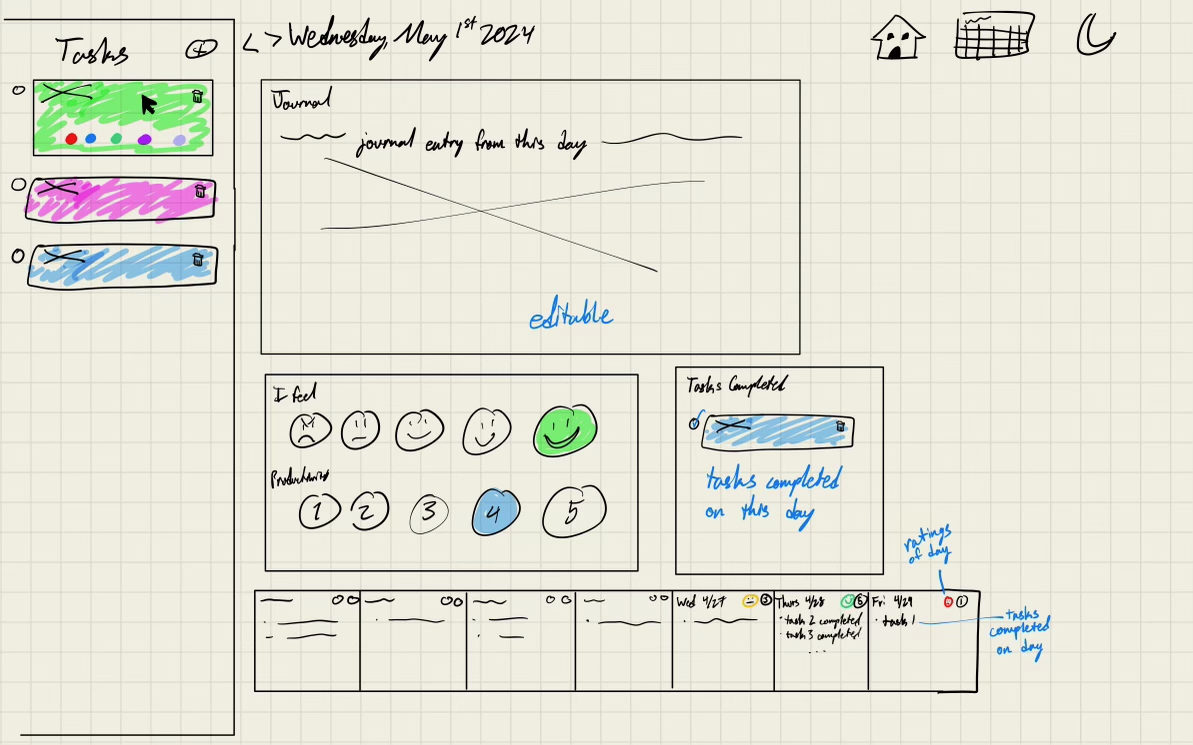 Tasks
< > Wednesday, May 1st 2024
Journal
journal entry from this day
editable
I feel
Productivity
1 2 3 4 5
Tasks Completed
tasks completed
on this day
ratings
of day
Wed 4/27 3
Thurs 4/28 5
· task 2 completed
· task 3 completed
...
Fri 4/29 1
· task 1
tasks
completed
on day